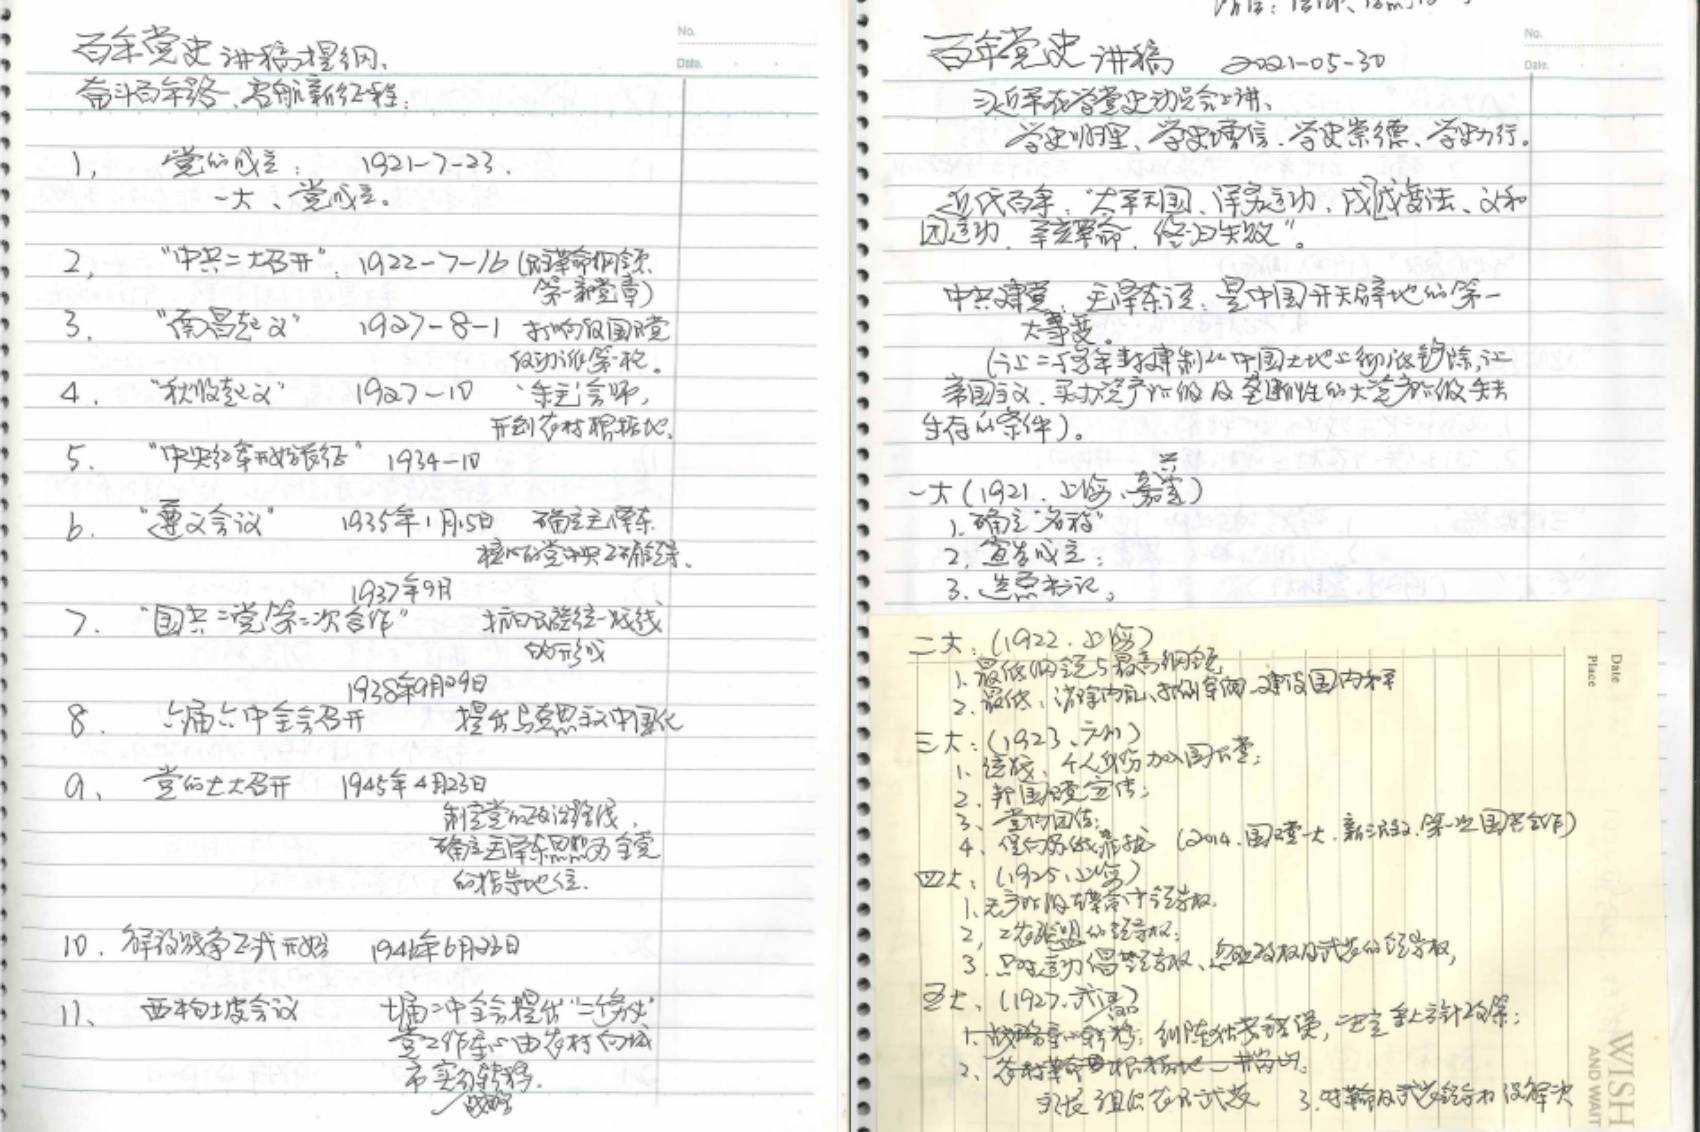 No.
Date.
百年党史讲稿提纲、
奋斗百年路、启航新征程:
1, 党的成立: 1921-7-23.
一大、党成立。
2, "中共二大召开": 1922-7-16 (民主革命纲领
第一部党章)
3. "南昌起义" 1927-8-1 打响反国民党
反动派第一枪。
4. "秋收起义" 1927-10 朱毛会师,
开到农村根据地.
5. "中央红军开始长征" 1934-10
6. "遵义会议" 1935年1月15日 确立毛泽东
核心的党中央正确领导.
1937年9月
7. "国共二党第二次合作" 抗日民族统一战线
的形成
1938年9月29日
8. 六届六中全会召开 提出马克思主义中国化
9、 党的七大召开 1945年4月23日
制定党的政治路线,
确立毛泽东思想为全党
的指导地位.
10. 解放战争正式开始 1946年6月26日
11、 西柏坡会议 七届二中全会提出"二个务必"
党工作重心由农村向城
市实行转移.
战略
No.
Date.
百年党史讲稿 2021-05-30
习近平在学党史动员会上讲、
学史明理、学史增信、学史崇德、学史力行。
近代百年: "太平天国、洋务运动、戊戌变法、义和
团运动、辛亥革命、终归失败"。
中共建党, 毛泽东说: 是中国开天辟地的第一
大事变。
生存的条件)。
一大 (1921. 上海、嘉兴)
1. 确立"名称"
2, 宣告成立;
3. 选票书记。
二大: (1922. 上海)
1. 最低纲领与最高纲领
2. 最低: 消除内乱、打倒军阀、建设国内和平
三大: (1923、广州)
1. 统战、个人身份加入国民党;
2. 帮国民党宣传;
3、党的团结;
4、 (2014. 国民党一大. 新三民主义. 第一次国共合作)
四大: (1925. 上海)
1. 无产阶级在革命中领导权.
2, 工农联盟的领导权;
3. 只注意力倡导领导权、忽略政权及武装的领导权,
五大: (1927. 武汉)
1. 战略重心转移: 纠陈独秀错误,
2. 农村革命根据地
3. 对革命及武装领导权没解决
Date
Place
WISH
AND WAIT